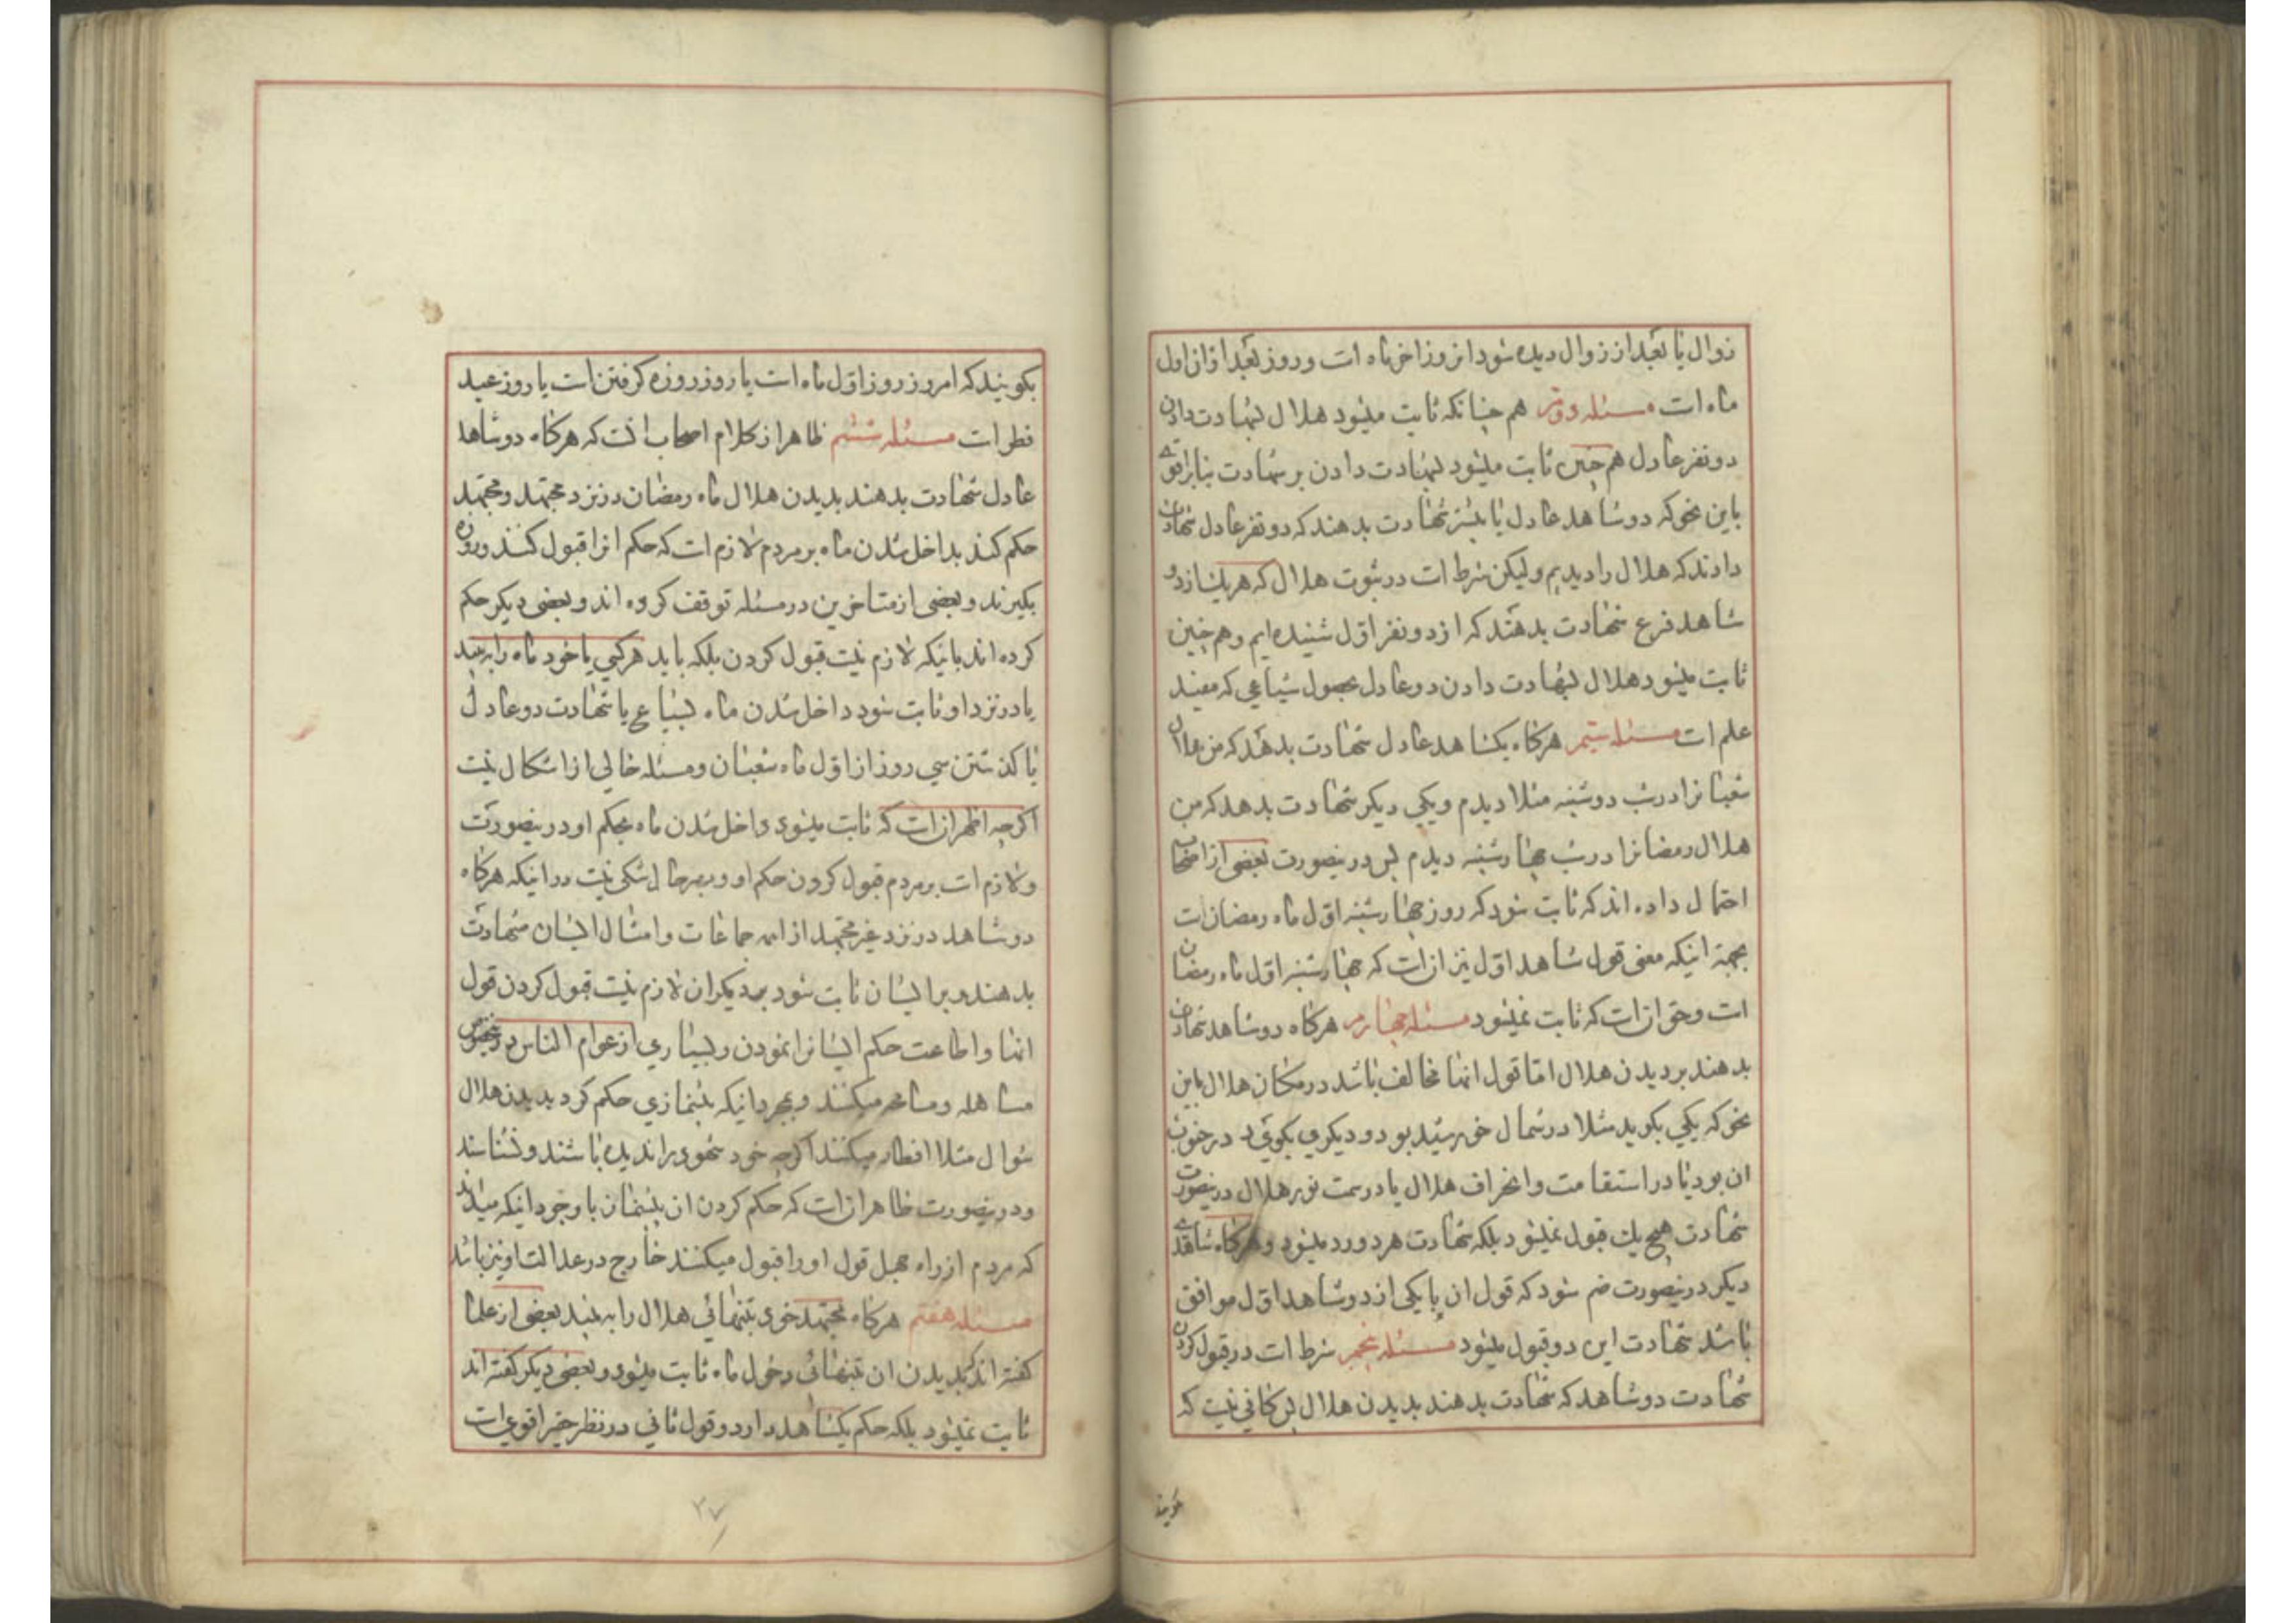 زوال یا بعد از زوال دیده شود انروز اخر ماه است و روز بعد از ان اول
ماه است مسئله دویم هم چنانکه ثابت میشود هلال بشهادت دادن
دو نفر عادل هم چنین ثابت میشود بشهادت دادن بر شهادت بنابر اقوی
باین نحو که دو شاهد عادل یا بیشتر شهادت بدهند که دو نفر عادل شهادت
دادند که هلال را دیدیم و لیکن شرط است در ثبوت هلال که هر یک از دو
شاهد فرع شهادت بدهند که از دو نفر اول شنیده ایم و هم چنین
ثابت میشود هلال بشهادت دادن دو عادل بحصول شیاعی که مفید
علم است مسئله سیم هرکاه یکشاهد عادل شهادت بدهد که من هلال
شعبانرا در شب دوشنبه مثلا دیدم و یکی دیکر شهادت بدهد که من
هلال رمضانرا در شب چهارشنبه دیدم پس در ینصورت بعضی از اصحاب
احتمال داده اند که ثابت شود که روز چهارشنبه اول ماه رمضان است
بجهة اینکه معنی قول شاهد اول نیز ان است که چهارشنبه اول ماه رمضان
است و حق ان است که ثابت نمیشود مسئله چهارم هرکاه دو شاهد شهادت
بدهند بر دیدن هلال اما قول انها مخالف باشد در مکان هلال باین
نحو که یکی بکوید مثلا در شمال خورشید بود و دیکری بکوید در جنوب
ان بود یا در استقامت و انحراف هلال یا در سمت نور هلال در ینصورت
شهادت هیچ یک قبول نمیشود بلکه شهادت هر دو رد میشود و هرکاه شاهدی
دیکر در ینصورت ضم شود که قول ان با یکی از دو شاهد اول موافق
باشد شهادت این دو قبول میشود مسئله پنجم شرط است در قبول کردن
شهادت دو شاهد که شهادت بدهند بدیدن هلال پس کافی نیست که
بکویند
بکویند که امروز روز اول ماه است یا روز روزه کرفتن است یا روز عید
فطر است مسئله ششم ظاهر از کلام اصحاب انست که هرکاه دو شاهد
عادل شهادت بدهند بدیدن هلال ماه رمضان در نزد مجتهد و مجتهد
حکم کند بداخل شدن ماه بر مردم لازم است که حکم انرا قبول کنند و روزه
بکیرند و بعضی از متاخرین در مسئله توقف کرده اند و بعضی دیکر حکم
کرده اند باینکه لازم نیست قبول کردن بلکه باید هر کسی یا خود ماه را به بیند
یا در نزد او ثابت شود داخل شدن ماه بشیاع یا شهادت دو عادل
یا کذشتن سی روز از اول ماه شعبان و مسئله خالی از اشکال نیست
اکرچه اظهر ان است که ثابت میشود داخل شدن ماه بحکم او در ینصورت
و لازم است بر مردم قبول کردن حکم او و بهر حال شکی نیست در اینکه هرکاه
دو شاهد در نزد غیر مجتهد از ائمه جماعات و امثال ایشان شهادت
بدهند و بر ایشان ثابت شود بر دیکران لازم نیست قبول کردن قول
انها و اطاعت حکم ایشانرا نمودن و بسیاری از عوام الناس در ینخصوص
مساهله و مسامحه میکنند و بمجرد اینکه پیشنمازی حکم کرد بدیدن هلال
شوال مثلا افطار میکنند اکرچه خود شهود را ندیده باشند و نشناسند
و در ینصورت ظاهر ان است که حکم کردن ان پیشنماز با وجود اینکه میداند
که مردم از راه جهل قول او را قبول میکنند خارج در عدالت او نیز باشد
مسئله هفتم هرکاه مجتهد خود بتنهائی هلال را به بیند بعضی از علما
کفته اند بدیدن ان بتنهائی دخول ماه ثابت میشود و بعضی دیکر کفته اند
ثابت نمیشود بلکه حکم یکشاهد دارد و قول ثانی در نظر حقیر اقوی است
۳۷